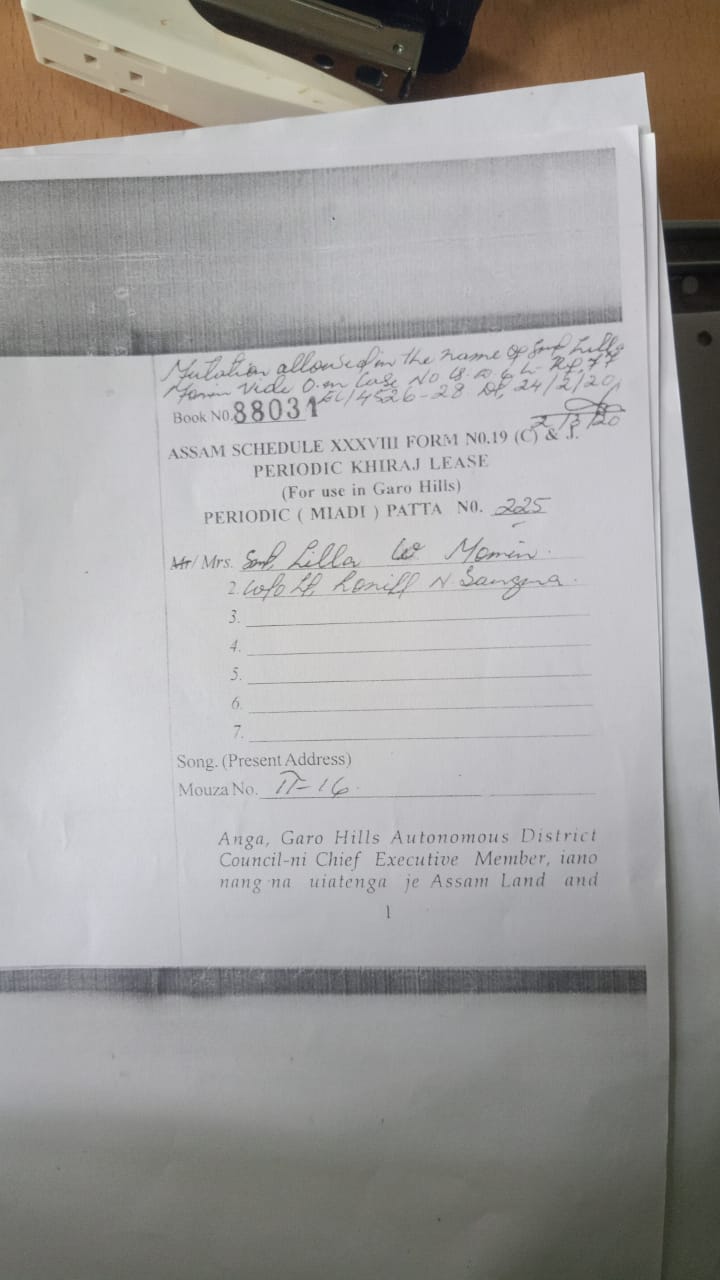 Mutation allowed in the name of Smt Lilla
Momin Vide O.m Case No
4526-28 Dt, 24/2/20
Book N0. 88031
2/3/20
ASSAM SCHEDULE XXXVIII FORM N0.19 (C) & J.
PERIODIC KHIRAJ LEASE
(For use in Garo Hills)
PERIODIC ( MIADI ) PATTA N0. 225
Mr/ Mrs. Smt, Lilla W. Momin.
2. W/o Lt, N. Sangma.
3.
4.
5.
6.
7.
Song. (Present Address)
Mouza No. II-16
Anga, Garo Hills Autonomous District
Council-ni Chief Executive Member, iano
nang·na uiatenga je Assam Land and
1